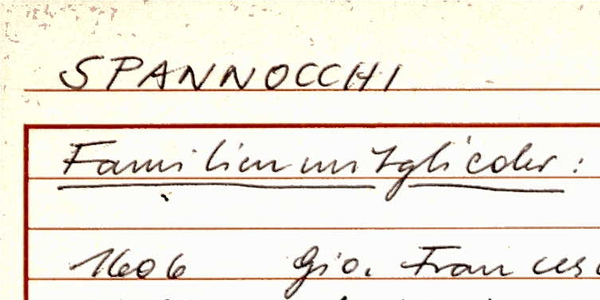 SPANNOCCHI
Familienmitglieder:
1606 Gio. Francesc